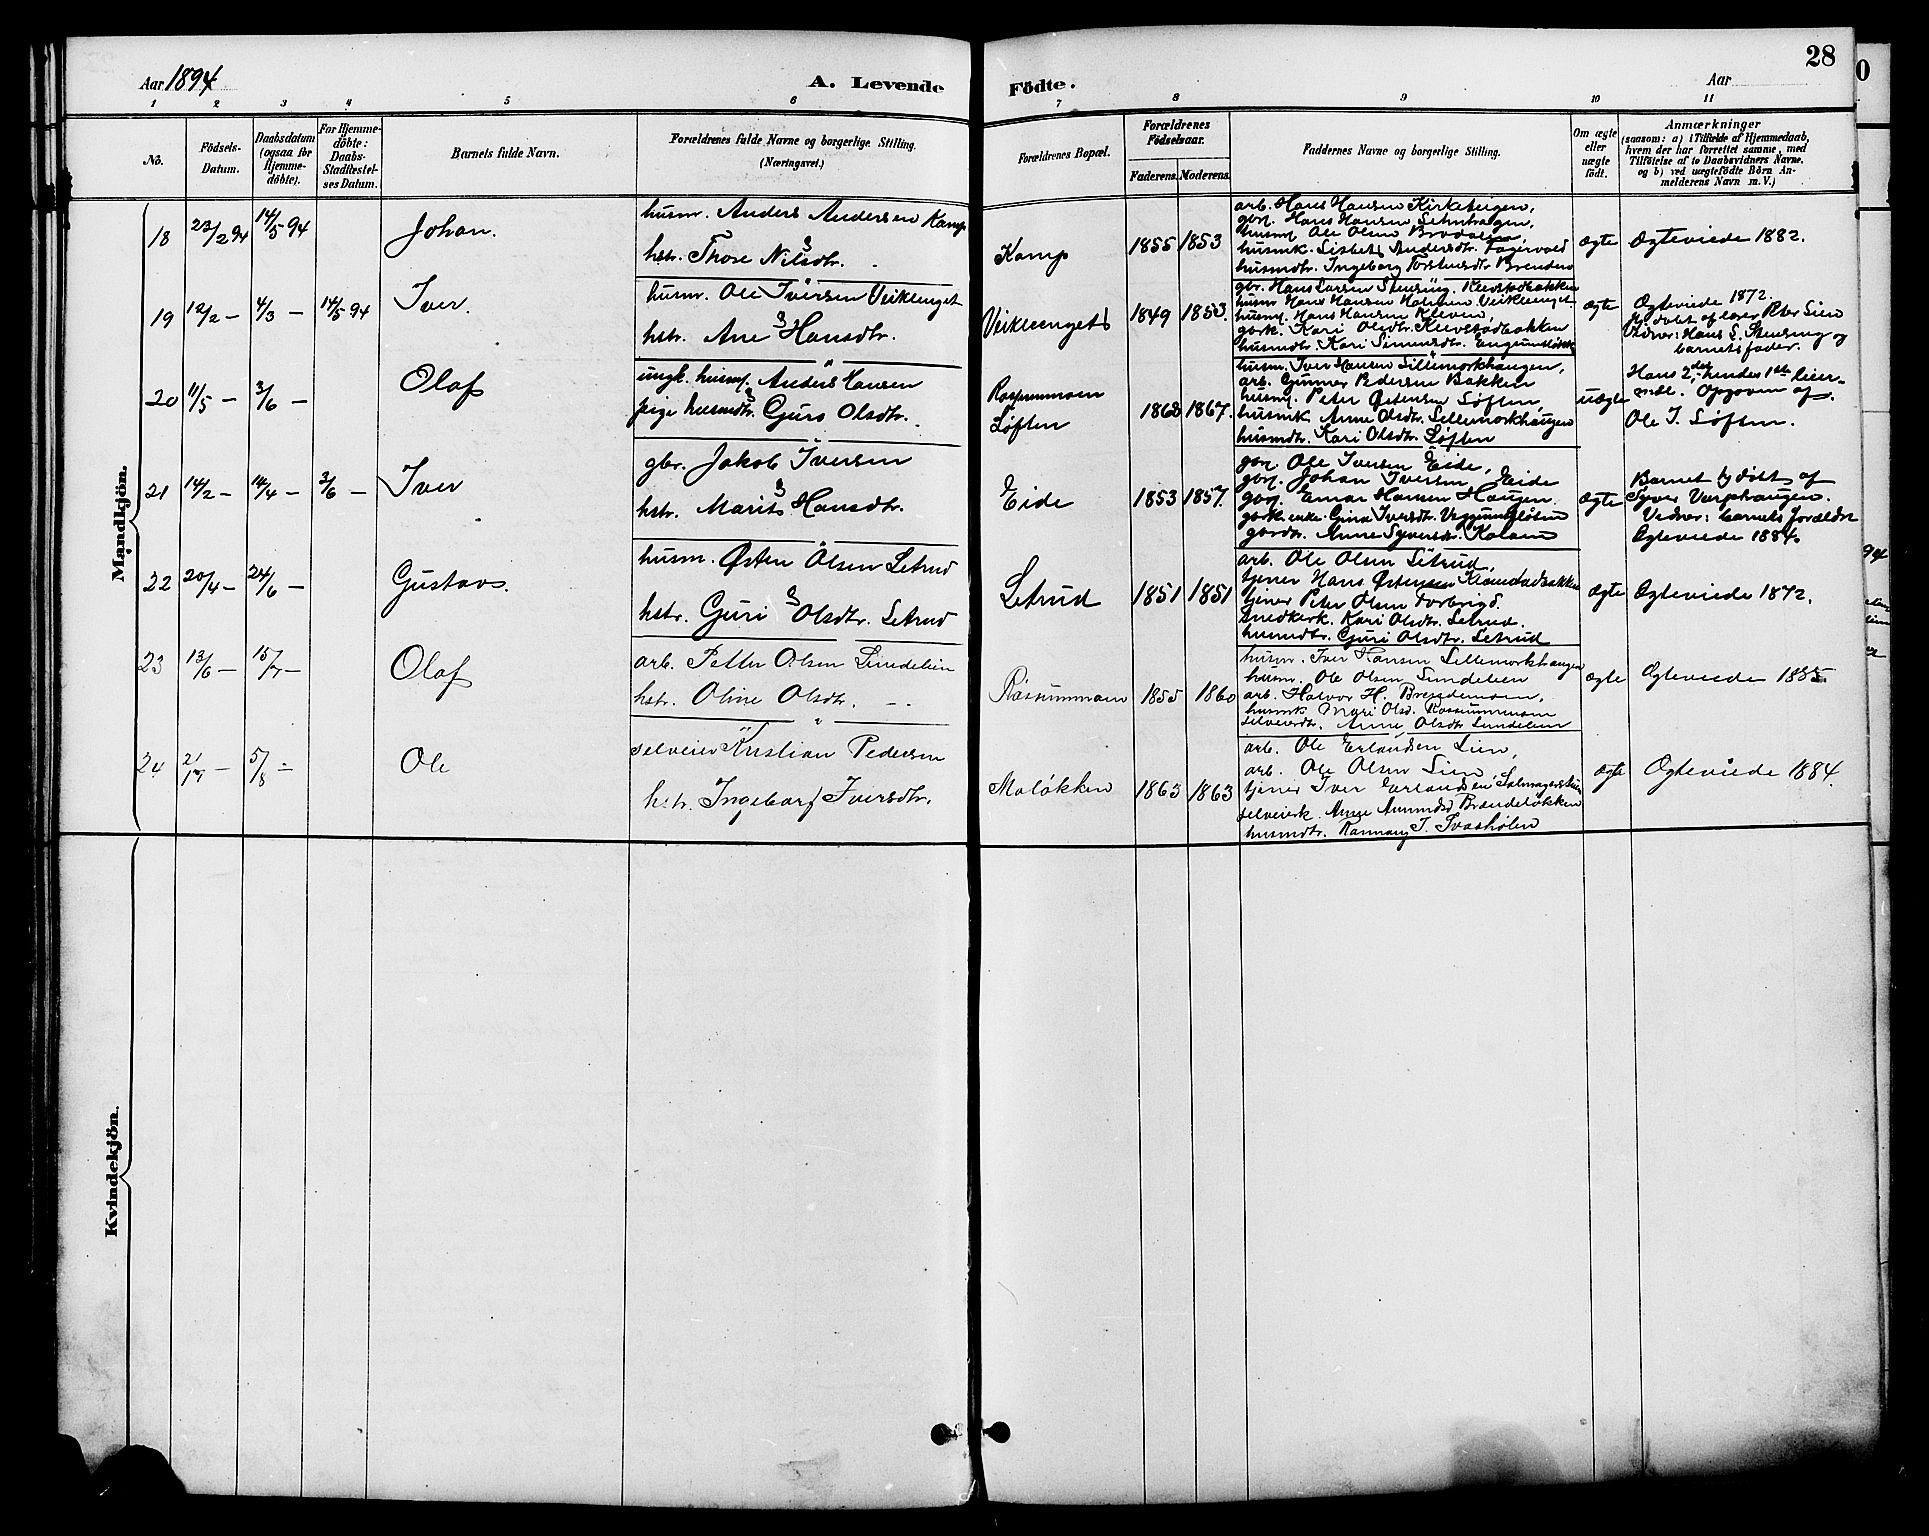 28
Aar 1894
A. Levende
Födte.
Aar
1 2 3 4 5 6 7 8 9 10 11
No.
Födsels-Datum.
Daabsdatum (ogsaa for Hjemme-döbte).
For Hjemme-döbte: Daabs-Stadfæstel-ses Datum.
Barnets fulde Navn.
Forældrenes fulde Navne og borgerlige Stilling.
(Næringsvei.)
Forældrenes Bopæl.
Forældrenes Födselsaar.
Faderens. Moderens.
Faddernes Navne og borgerlige Stilling.
Om ægte eller uægte födt.
Anmærkninger
(saasom: a) i Tilfælde af Hjemmedaab, hvem der har forrettet samme, med Tilföielse af to Daabsvidners Navne, og b) ved uægtefödte Börn An-melderens Navn m. V.)
Mandkjön.
18 22/2 94 14/5 94 Johan.
husm. Anders Andersen Kamp
hstr. Thore Nilsdtr.
Kamp 1855 1853
arb. Hans Hansen Kirketeigen,
husm. Ole Olsen Brodalen
husmk. Lisbet Andersdtr. Fagervold
husmdtr. Ingeborg Torstensdtr. Brenden
ægte Ægteviede 1882.
19 12/2 — 4/3 — 14/5 94 Iver.
husm. Ole Iversen Veikleenget
hstr. Ane Hansdtr.
Veikleenget 1849 1853.
gbr. Hans Larsen Skensing,
husm Hans Hansen Holmen Veikleenget
husm. Hans Hansen Kleven,
gbrk. Kari Olsdtr.
husmdtr. Kari Simensdtr.
ægte Ægteviede 1872.
Hj.døbt af lærer Peter Lien
Vidner: Hans L. Skensing og
barnets fader.
20 11/5 — 3/6 — Olaf
ungk. husm. Anders Hansen
pige husmdtr. Guro Olsdtr.
Løften 1862 1867.
husm. Iver Hansen Sillemorkhaugen,
arb. Gunnar Pedersen Bakken
husm. Peter Østensen Løften,
husmk Anne Olsdtr. Sellemorkhaugen
husmdtr. Kari Olsdtr. Løften
uægte Hans 2det, hendes 1ste leier-
mål. Opgoven af
Ole I. Løften.
21 14/2 — 14/4 — 3/6 — Iver
gbr. Jakob Iversen
hstr. Marit Hansdtr.
Eide 1853 1857.
Ole Iversen Eide,
Johan Iversen Eide
Einar Hansen Haugen
Anne Syversdtr.
ægte Barnet hj.døbt af
Syver Varphaugen.
Vidner: barnets forældre
Ægteviede 1884.
22 20/4 — 24/6 — Gustav.
husm. Østen Olsen Letrud
hstr. Guri Olsdtr. Letrud
Letrud 1851 1851
arb. Ole Olsen Letrud,
tjener Hans Østensen
tjener Peter Olsen Forbrigd.
snedkerk. Kari Olsdtr. Letrud.
husmdtr. Guri Olsdtr. Letrud
ægte Ægteviede 1872.
23 13/6 — 15/7 — Olaf
arb. Petter Olsen Sundelien
hstr. Oline Olsdtr.
Råssummoen 1855 1860
husm. Iver Hansen Sellemorkhaugen
husm. Ole Olsen Sundelien
arb. Halvor H. Bressdemoen,
husmk Mari Olsd. Rassummoen
selveierdtr. Anne Olsdtr Sundelien
ægte Ægteviede 1885.
24 21/17 — 5/8 — Ole
selveier Kristian Pedersen
hstr. Ingeborg Iversdtr.
Moløkken 1863 1863
arb. Ole Erlandsen Lien,
arb. Ole Olsen Lien
tjener Iver Erlandsen
selveierk. Anne Amundsd Brændeløkken
husmdtr. Rannang I. Svashølen
ægte Ægteviede 1884.
Kvindekjön.